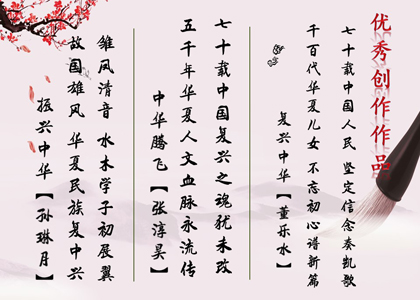 优秀创作作品
七十载中国人民 坚定信念奏凯歌
千百代华夏儿女 不忘初心谱新篇
复兴中华【董乐水】
七十载中国复兴之魂犹未改
五千年华夏人文血脉永流传
中华腾飞【张淳昊】
雏凤清音 水木学子初展翼
故国雄风 华夏民族复中兴
振兴中华【孙琳月】